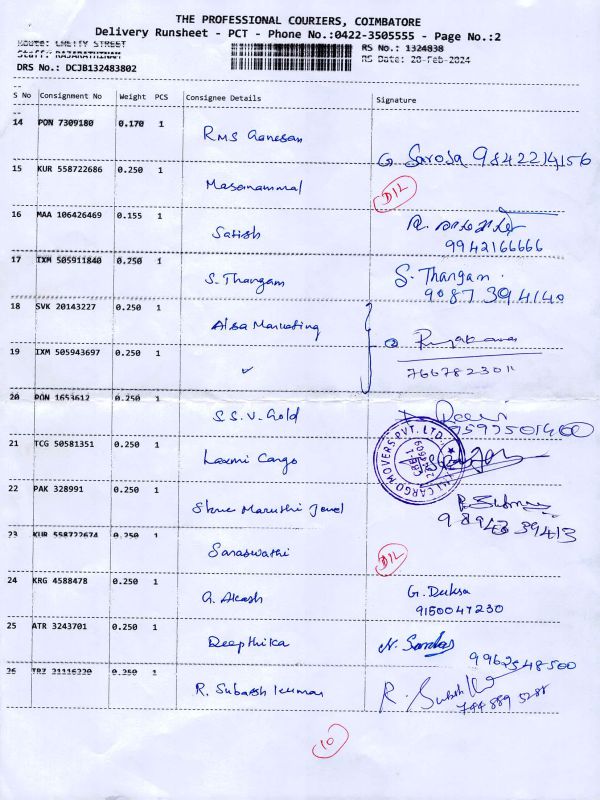 THE PROFESSIONAL COURIERS, COIMBATORE
Delivery Runsheet - PCT - Phone No.:0422-3505555 - Page No.:2
Route: CHETTY STREET
Staff: RAJARATHINAM
RS No.: 1324838
RS Date: 28-Feb-2024
DRS No.: DCJB132483802
S No Consignment No Weight PCS Consignee Details Signature
14 PON 7309180 0.170 1 RMS Ganesan
G Saroja 9842214156
15 KUR 558722686 0.250 1 Masanammal
D1L
16 MAA 106426469 0.155 1 Satish
9942166666
17 IXM 505911840 0.250 1 S. Thangam
S. Thangam
9087394140
18 SVK 20143227 0.250 1 Alsa Marketing
19 IXM 505943697 0.250 1 ✓
7667823011
20 PON 1653612 0.250 1 S.S.V. Gold
7597501460
21 TCG 50581351 0.250 1 Laxmi Cargo
CARGO MOVERS PVT. LTD.
22 PAK 328991 0.250 1 Shree Maruthi Jewel
23 KUR 558722674 0.250 1 Saraswathi
D1L
24 KRG 4588478 0.250 1 G. Akash
G. Duksa
9150047230
25 ATR 3243701 0.250 1 Deepthika
9962548500
26 TRZ 21116220 0.250 1 R. Subaesh kumar
10